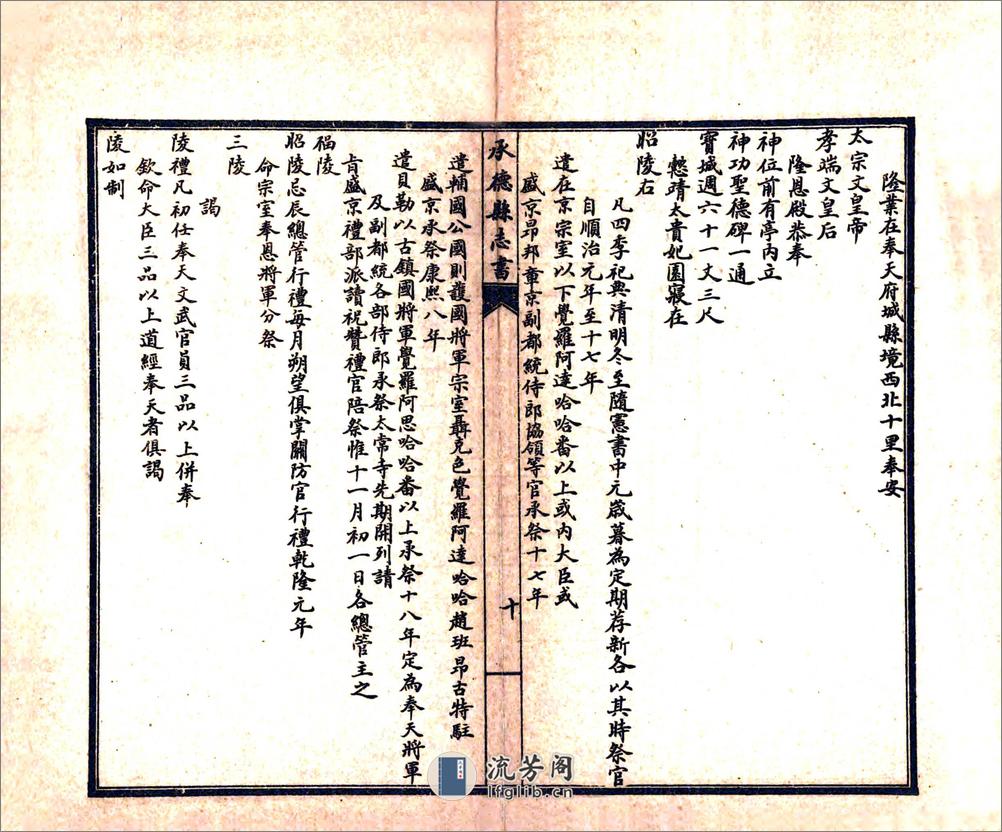 隆業在奉天府城縣境西北十里奉安
太宗文皇帝
孝端文皇后
隆恩殿恭奉
神位前有亭內立
神功聖德碑一通
寶城週六十一丈三尺
懿靖太貴妃園寢在
昭陵右
凡四季祀典清明冬至隨憲書中元歲暮為定期荐新各以其時祭官
自順治元年至十七年
遣在京宗室以下覺羅阿達哈哈番以上或內大臣或
盛京昂邦章京副都統侍郎協領等官承祭十七年
承德縣志書
十
遣輔國公國則護國將軍宗室聶克色覺羅阿達哈哈趙班昂古特駐
盛京承祭康熙八年
遣貝勒以古鎮國將軍覺羅阿思哈哈番以上承祭十八年定為奉天將軍
及副都統各部侍郎承祭太常寺先期開列請
旨盛京禮部派讀祝贊禮官陪祭惟十一月初一日各總管主之
福陵
昭陵忌辰總管行禮每月朔望俱掌關防官行禮乾隆元年
命宗室奉恩將軍分祭
三陵
謁
陵禮凡初任奉天文武官員三品以上併奉
欽命大臣三品以上道經奉天者俱謁
陵如制
流芳阁
lfglib.cn